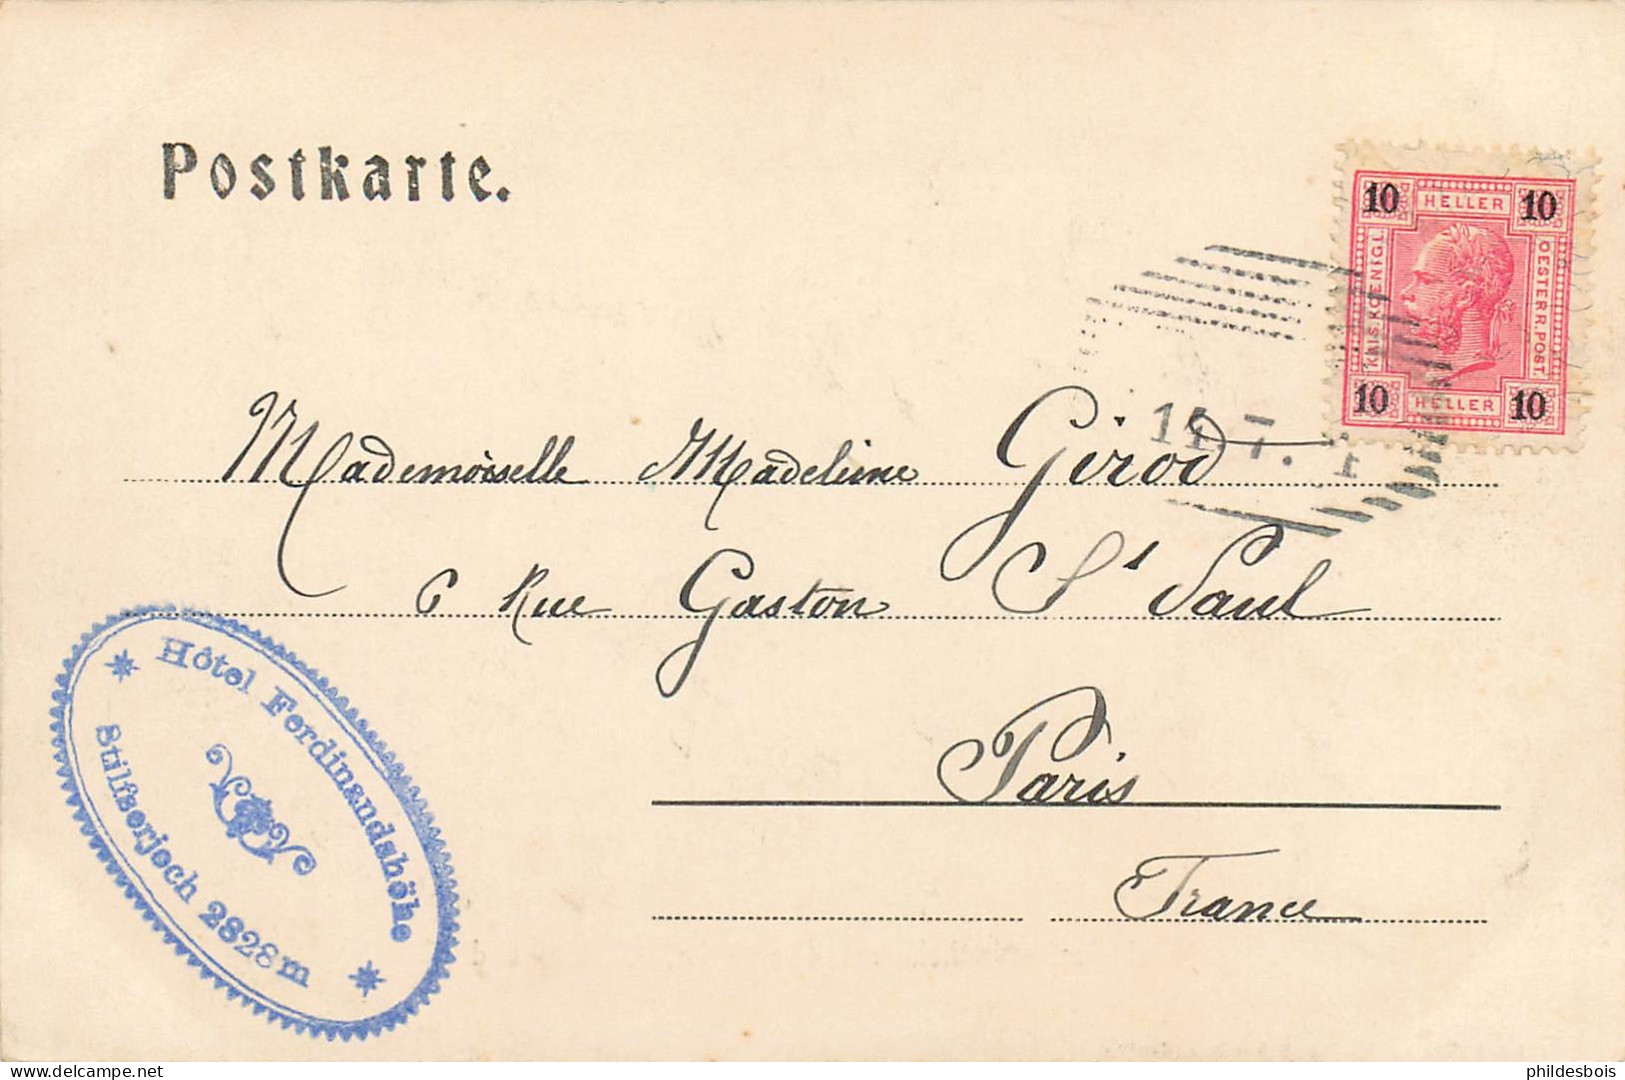 Postkarte.
10 HELLER 10
KAIS. KOENIGL.
OESTERR. POST
10 HELLER 10
14.7. 1
Mademoiselle Madeleine Girod
6 Rue Gaston St Paul
Paris
France
Hôtel Ferdinandshöhe
Stilfserjoch 2828 m
phildesbois